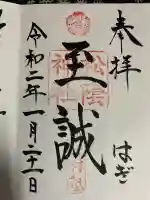 奉拝
はぎ
至誠
松陰神社
令和二年一月二十一日